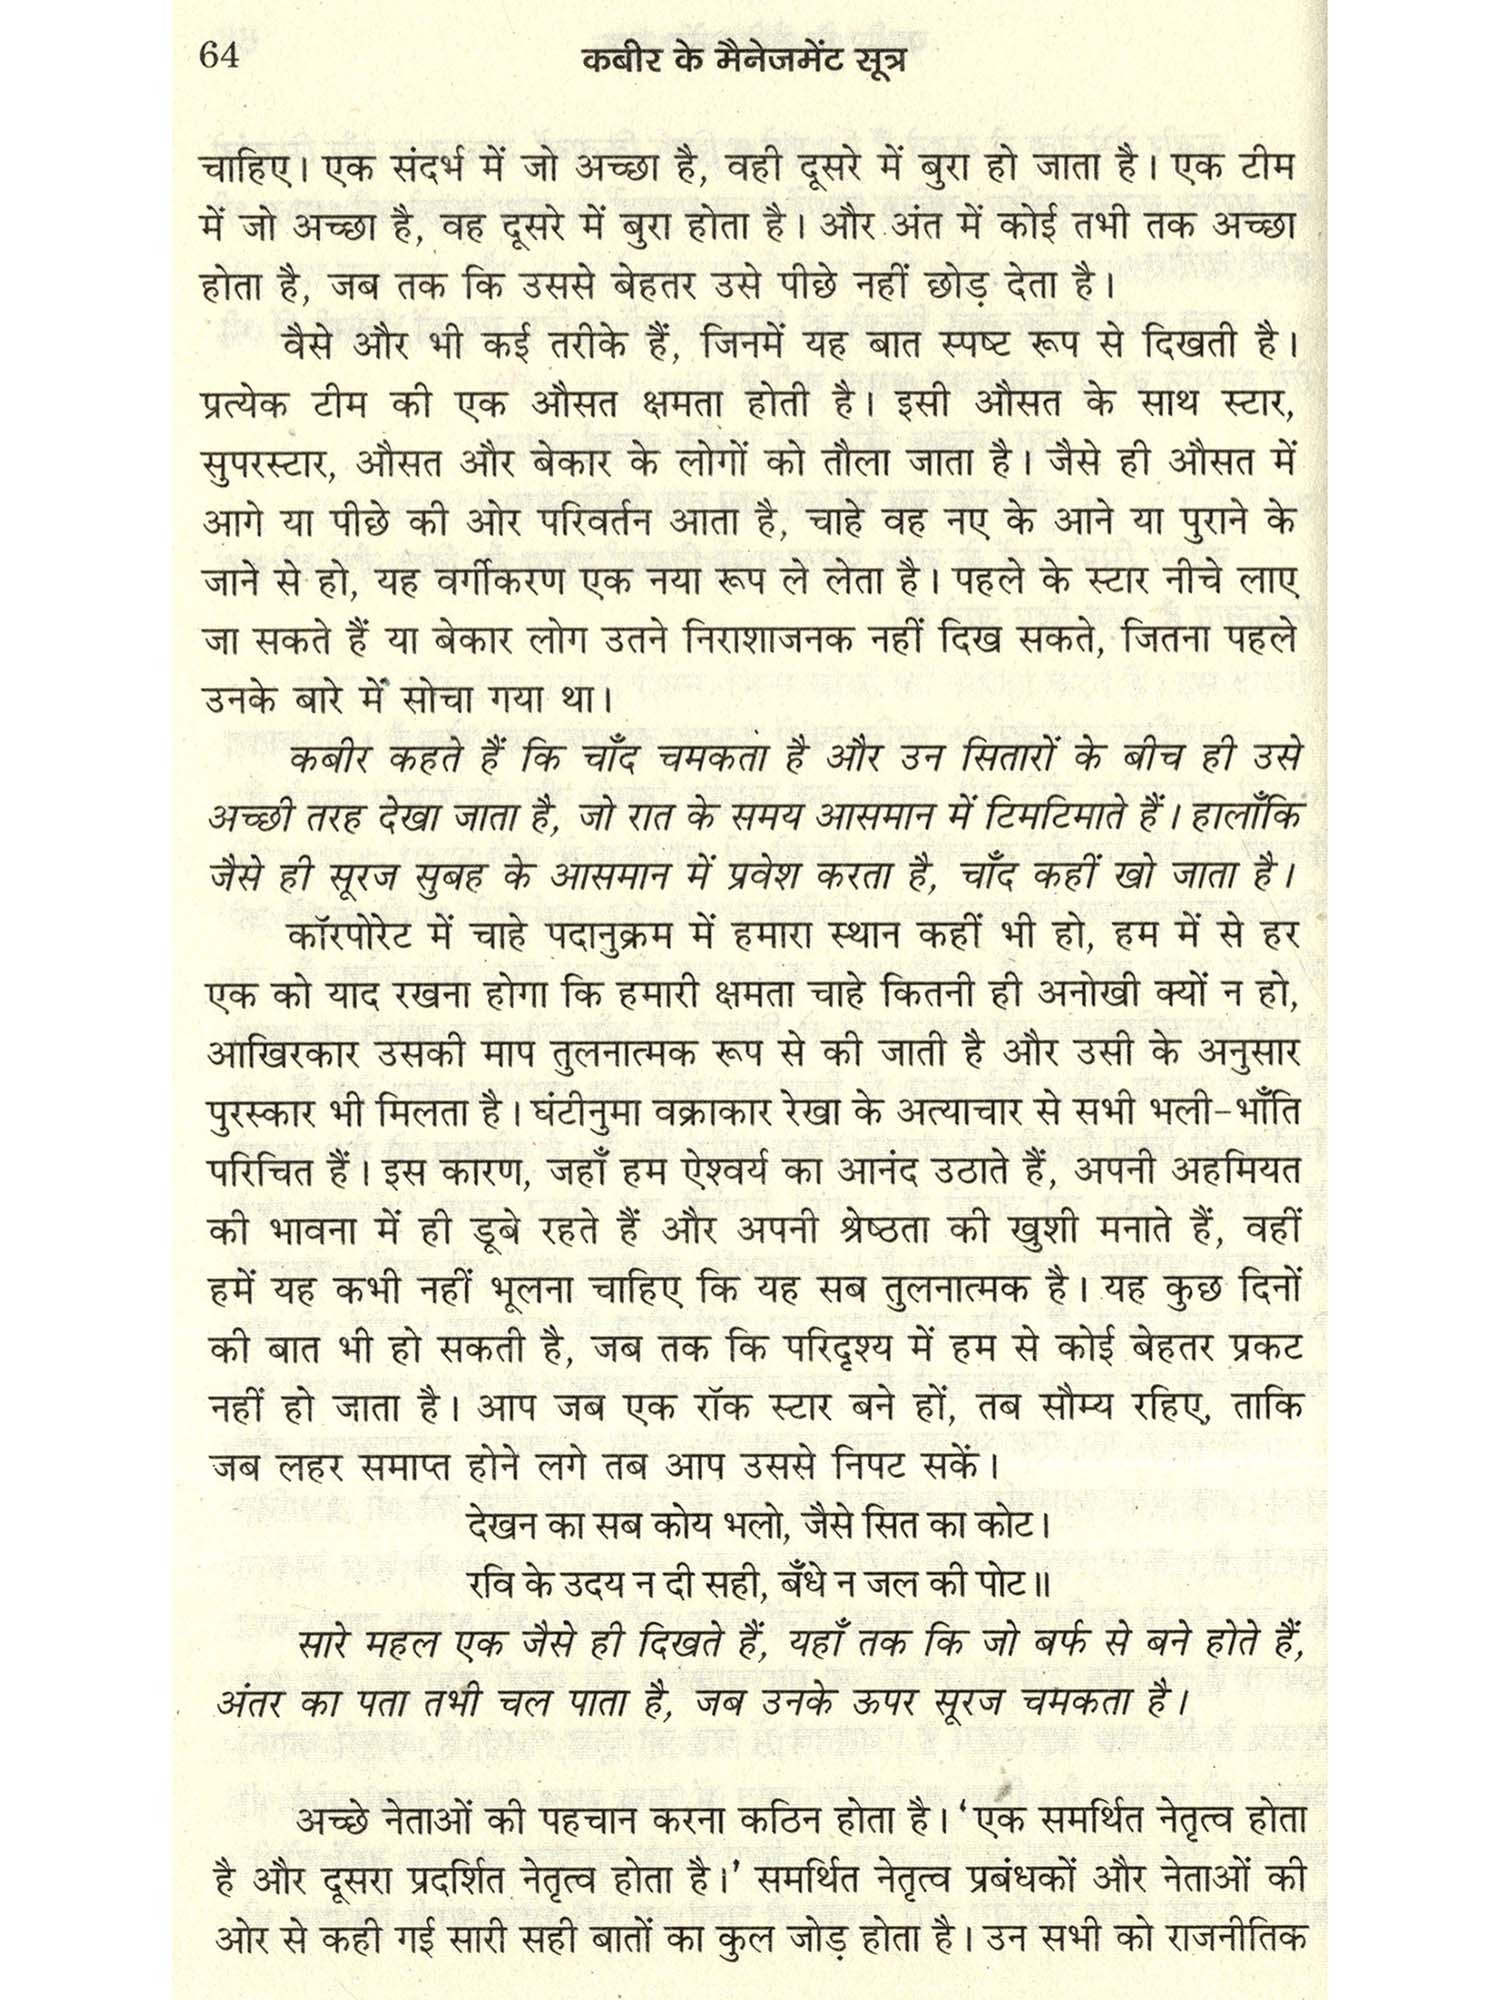 64
कबीर के मैनेजमेंट सूत्र
चाहिए। एक संदर्भ में जो अच्छा है, वही दूसरे में बुरा हो जाता है। एक टीम
में जो अच्छा है, वह दूसरे में बुरा होता है। और अंत में कोई तभी तक अच्छा
होता है, जब तक कि उससे बेहतर उसे पीछे नहीं छोड़ देता है।
वैसे और भी कई तरीके हैं, जिनमें यह बात स्पष्ट रूप से दिखती है।
प्रत्येक टीम की एक औसत क्षमता होती है। इसी औसत के साथ स्टार,
सुपरस्टार, औसत और बेकार के लोगों को तौला जाता है। जैसे ही औसत में
आगे या पीछे की ओर परिवर्तन आता है, चाहे वह नए के आने या पुराने के
जाने से हो, यह वर्गीकरण एक नया रूप ले लेता है। पहले के स्टार नीचे लाए
जा सकते हैं या बेकार लोग उतने निराशाजनक नहीं दिख सकते, जितना पहले
उनके बारे में सोचा गया था।
कबीर कहते हैं कि चाँद चमकता है और उन सितारों के बीच ही उसे
अच्छी तरह देखा जाता है, जो रात के समय आसमान में टिमटिमाते हैं। हालाँकि
जैसे ही सूरज सुबह के आसमान में प्रवेश करता है, चाँद कहीं खो जाता है।
कॉरपोरेट में चाहे पदानुक्रम में हमारा स्थान कहीं भी हो, हम में से हर
एक को याद रखना होगा कि हमारी क्षमता चाहे कितनी ही अनोखी क्यों न हो,
आखिरकार उसकी माप तुलनात्मक रूप से की जाती है और उसी के अनुसार
पुरस्कार भी मिलता है। घंटीनुमा वक्राकार रेखा के अत्याचार से सभी भली-भाँति
परिचित हैं। इस कारण, जहाँ हम ऐश्वर्य का आनंद उठाते हैं, अपनी अहमियत
की भावना में ही डूबे रहते हैं और अपनी श्रेष्ठता की खुशी मनाते हैं, वहीं
हमें यह कभी नहीं भूलना चाहिए कि यह सब तुलनात्मक है। यह कुछ दिनों
की बात भी हो सकती है, जब तक कि परिदृश्य में हम से कोई बेहतर प्रकट
नहीं हो जाता है। आप जब एक रॉक स्टार बने हों, तब सौम्य रहिए, ताकि
जब लहर समाप्त होने लगे तब आप उससे निपट सकें।
देखन का सब कोय भलो, जैसे सित का कोट।
रवि के उदय न दी सही, बँधे न जल की पोट॥
सारे महल एक जैसे ही दिखते हैं, यहाँ तक कि जो बर्फ से बने होते हैं,
अंतर का पता तभी चल पाता है, जब उनके ऊपर सूरज चमकता है।
अच्छे नेताओं की पहचान करना कठिन होता है। ‘एक समर्थित नेतृत्व होता
है और दूसरा प्रदर्शित नेतृत्व होता है।’ समर्थित नेतृत्व प्रबंधकों और नेताओं की
ओर से कही गई सारी सही बातों का कुल जोड़ होता है। उन सभी को राजनीतिक